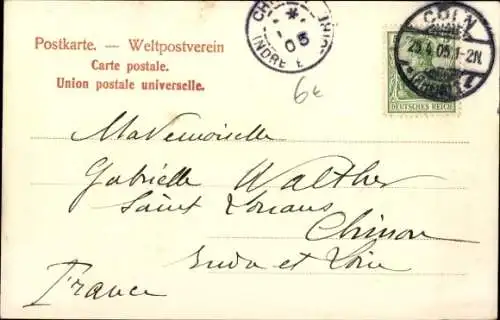 Postkarte. — Weltpostverein
Carte postale.
Union postale universelle.
CÖLN
25.4.05.1-2N.
DEUTSCHES REICH
05
INDRE E
6€
Mademoiselle
Gabrielle Walther
Saint Louans
Chinon
Indre et Loire
France